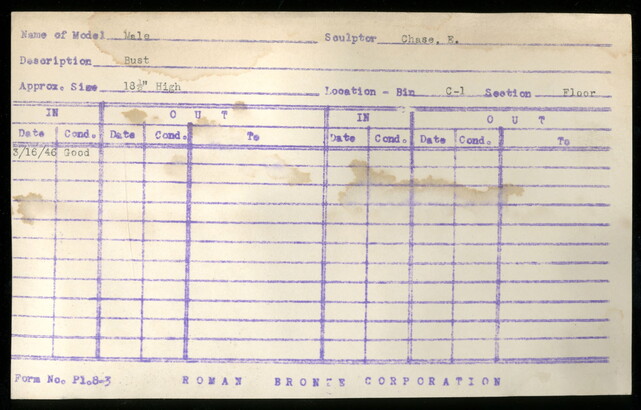 Name of Model Male Sculptor Chase, E.
Description Bust
Approx. Size 18½" High Location - Bin C-1 Section Floor
IN OUT IN OUT
Date Cond. Date Cond. To Date Cond. Date Cond. To
3/16/46 Good
Form No. Pl.8-3 ROMAN BRONZE CORPORATION